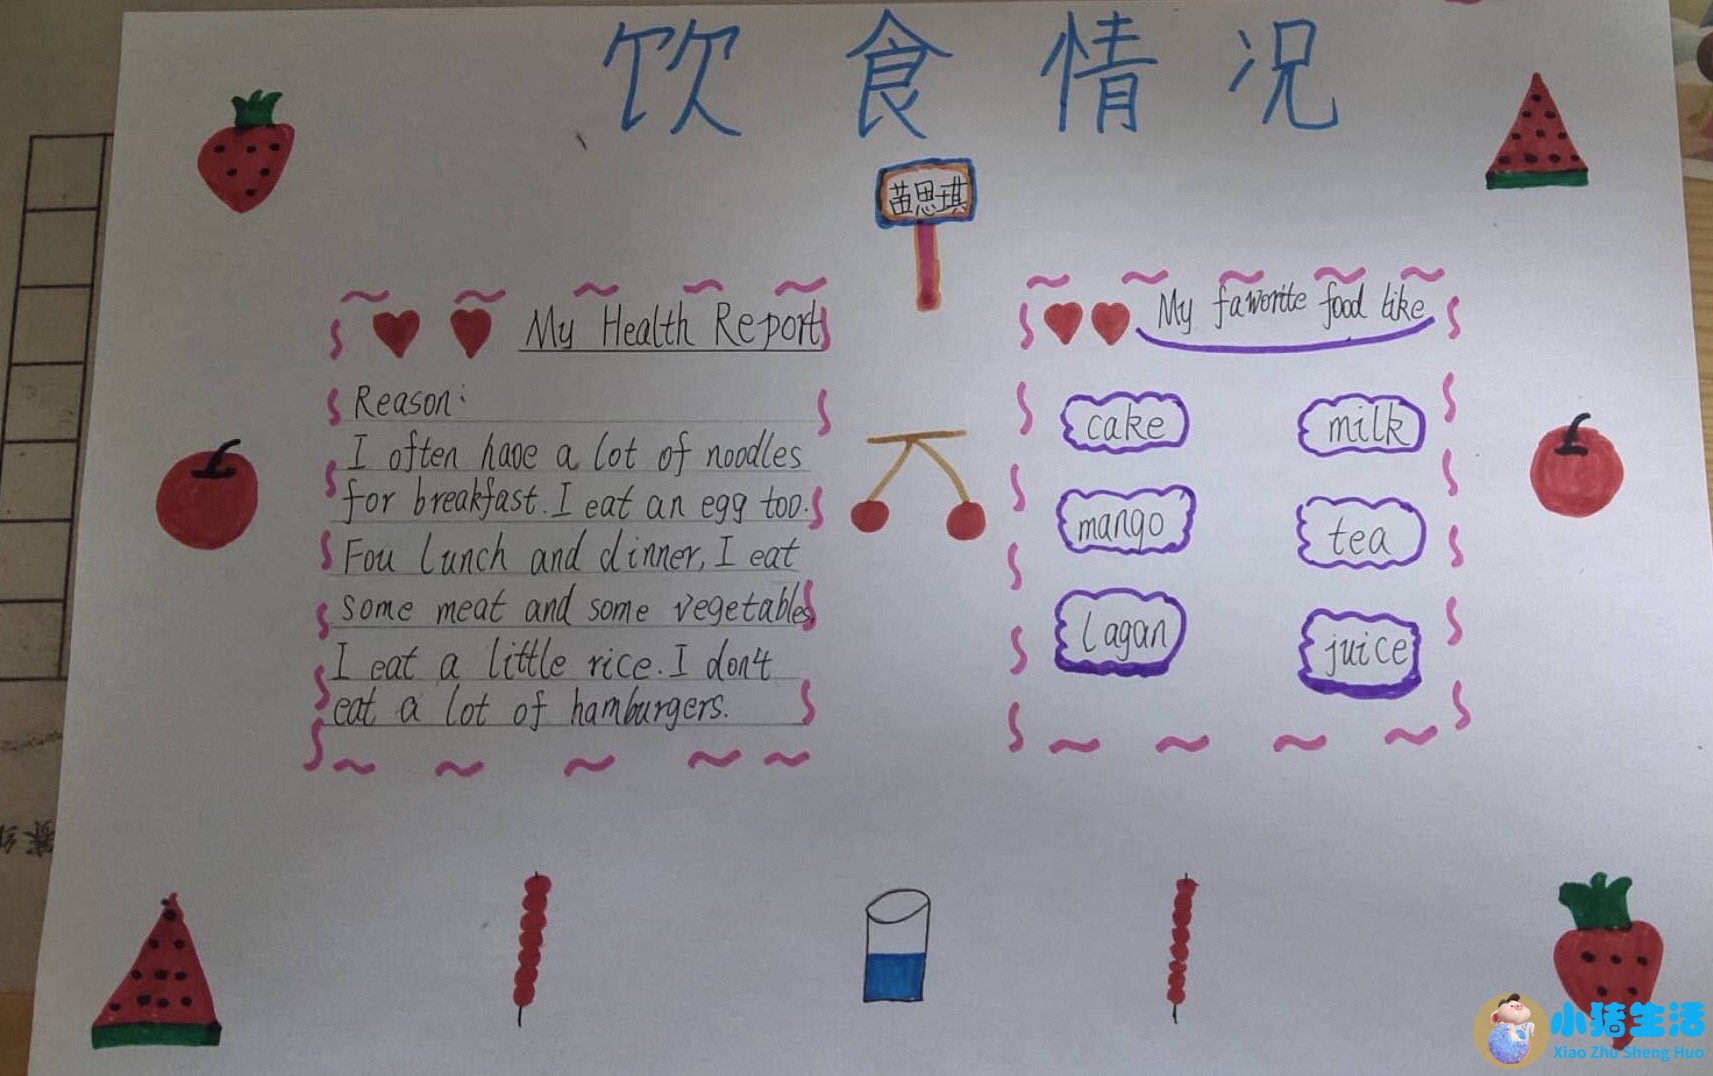 饮食情况
苗思琪
My Health Report
Reason:
I often have a lot of noodles
for breakfast. I eat an egg too.
Fou lunch and dinner, I eat
some meat and some vegetables
I eat a little rice. I don't
eat a lot of hamburgers.
My faworite food like
cake
milk
mango
tea
lagan
juice
小猪生活
Xiao Zhu Sheng Huo